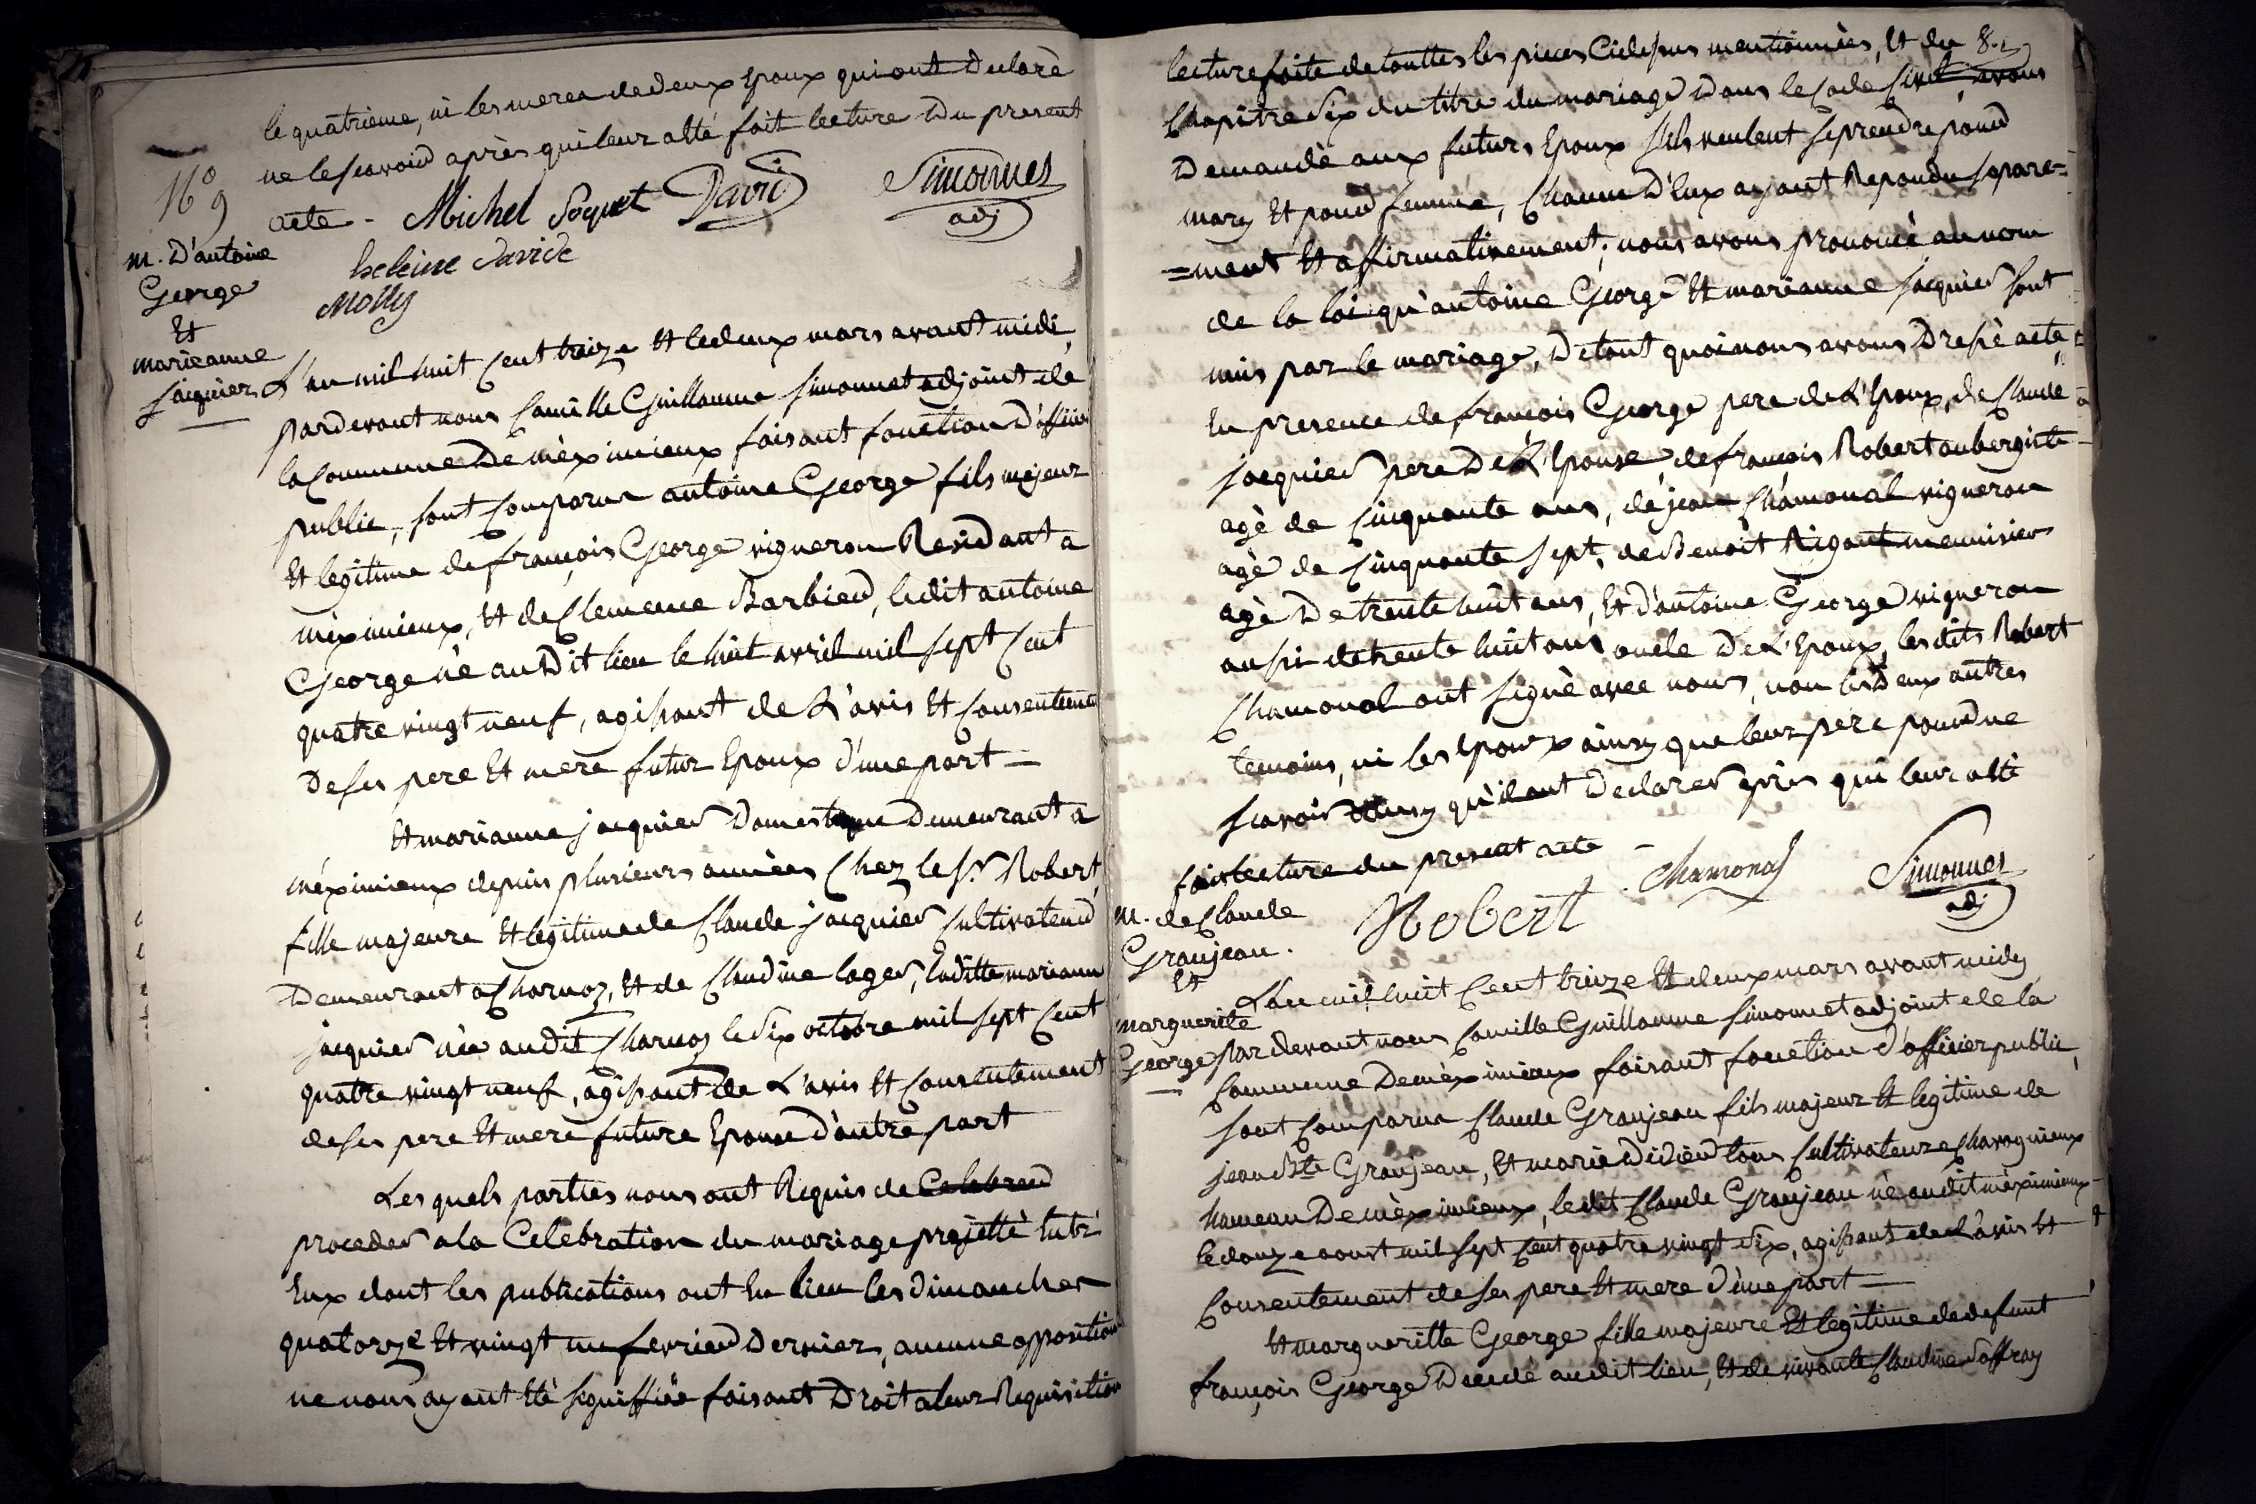 le quatrieme, ni les meres de deux Epoux qui ont declarè
ne le scavoir après qui leur a Eté fait lecture Du present
acte - Michel Soquet David Simonnet
adj
heleine david
Molly
N° 9
m. D'antoine
George
Et
marieanne
jaquier
L'an mil huit Cent treize Et le deux mars avant midi,
pardevant nous Camille Guillaume Simonnet adjoint de
la Commune De mèximieux faisant fonction D'officier
public, sont Comparus antoine George fils majeur
Et legitime de françois George vigneron Residant a
mèximieux, Et de Clemence Barbier, ledit antoine
George nè au Dit lieu le huit avril mil sept Cent
quatre vingt neuf, agissant de L'avis Et Consentement
De ses pere Et mere futur Epoux d'une part -
Et marianne jacquier Domestique Demeurant a
méximieux depuis plusieurs annèes Chez le Sr Robert,
fille majeure Et legitime de Claude jacquier Cultivateur
Demeurant a Charnoz, Et de Claudine lager, laditte mariann
jacquier nèe audit Charnoz le Six octobre mil sept Cent
quatre vingt neuf, agissant de L'avis Et Consentement
de ses pere Et mere future Epouse d'autre part
Les quels parties nous ont Requis de Celebrer
proceder a la Celebration du mariage projettè Entr'
Eux dont les publications ont Eu lieu les dimanches
quatorze Et vingt un fevrier Dernier, aucune opposition
ne nous ayant Etè signiffièe faisant Droit a leur Requisition
8.
lecture faite de touttes les pieces Cidessus mentionnèes, Et du
Chapitre Six du titre du mariage Dans le Code Civil, avons
Demandè aux futurs Epoux s'ils veulent se prendre pour
mary Et pour femme, Chacun D'Eux ayant Repondu separe=
=ment Et affirmativement; nous avons prononcè au nom
de la loi qu'antoine George Et marianne jacquier sont
unis par le mariage, De tout quoi nous avons Dressè acte
En presence de françois George pere de L'Epoux, de Claude
jacquier pere De L'Epouse de françois Robert aubergiste
agè de Cinquante ans, de jean Chamonal vigneron
agè de Cinquante sept, de Benoit Rigaut menuisier
agè De trente huit ans, Et d'antoine George vigneron
aussi de trente huit ans oncle De L'Epoux, les dits Robert
Chamonal ont signè avec nous, non les Deux autres
temoins, ni les Epoux ainsy que leur pere pour ne
scavoir ainsy qu'il ont Declarer après qui leur a Eté
fait lecture du present acte -
Robert Chamonal Simonnet
adj
m. de Claude
Granjean.
Et
marguerite
George
L'an mil huit Cent treize Et deux mars avant midy
pardevant nous Camille Guillaume Simonnet adjoint de la
Commune De mèximieux faisant fonction d'officier public,
sont Comparus Claude Granjean fils majeur Et legitime de
jean Bte Granjean, Et marie Didier tous Cultivateur a Chavagnieux
hameau De mèximieux, le dit Claude Granjean nè audit mèximieux
le douze aoust mil sept Cent quatre vingt Six, agissant de L'avis Et
Consentement de ses pere Et mere d'une part -
Et margueritte George fille majeure Et legitime de defunt
françois George Decedè audit lieu, Et de vivante Claudine Soffray